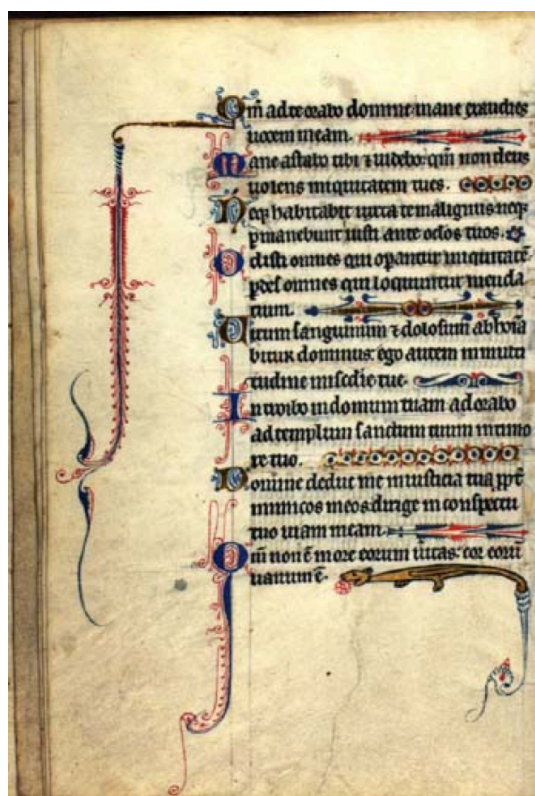 Qm̄ ad te orabo domine mane exaudies
uocem meam.
Mane astabo tibi ⁊ uidebo: qm̄ non deus
uolens iniquitatem tu es.
Neq; habitabit iuxta te malignus neq;
p̱manebunt iusti ante oc̄los tuos.
Odisti omnes qui op̱antur iniquitatē
p̱des omnes qui loquuntur menda
cium.
Uirum sanguinum ⁊ dolosum abhōia
bitur dominus: ego autem in multi
tudine mis̄cdie tue.
Introibo in domum tuam adorabo
ad templum sanctum tuum in timo
re tuo.
Domine deduc me in iusticia tua
inimicos meos dirige in conspectu
tuo uiam meam.
Qm̄ non ē in ore eorum ūitas: cor eorū
uanum ē.